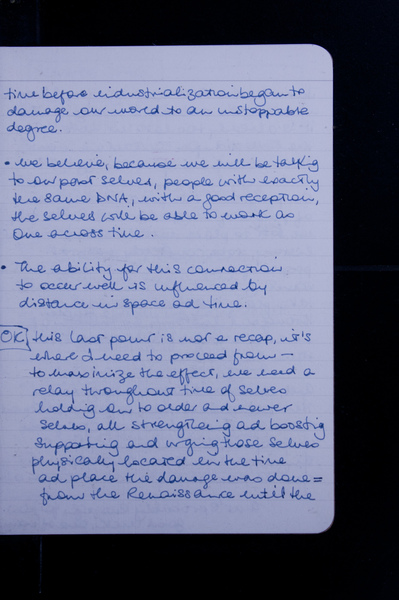 time before industrialization began to
damage our world to an unstoppable
degree.
• We believe, because we will be talking
to our past selves, people with exactly
the same DNA, with a good reception,
the selves will be able to work as
one across time.
• The ability for this connection
to occur well is influenced by
distance in space ad time.
OK, this last point is not a recap, it's
where I need to proceed from —
to maximize the effect, we need a
relay throughout time of selves
holding on to older and newer
selves, all strengthening ad boosting
supporting and urging those selves
physically located in the time
ad place the damage was done =
from the Renaissance until the